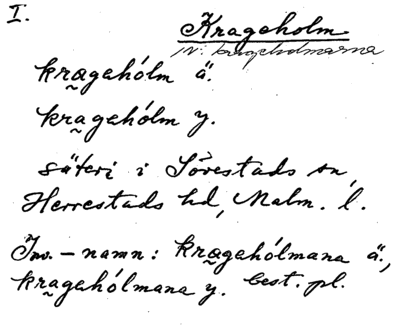 I.
Krageholm
N: krageholmarna
kra̰gehólm ä.
kra̰gehólm y.
säteri i Sövestads sn,
Herrestads hd, Malm. l.
Inv.-namn: kra̰gehólmana ä.,
kra̰gehólmana y. best. pl.